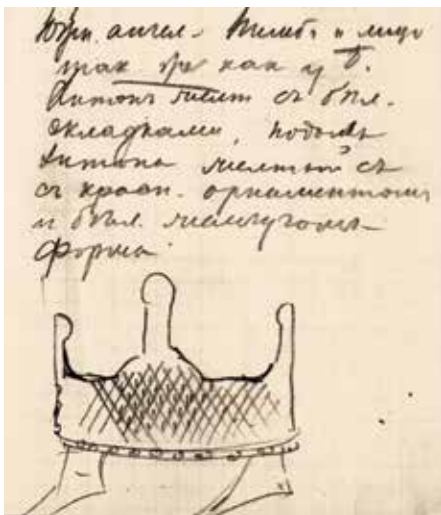 ангел. Нимбъ и лицо
так же как у
Хитонъ желт съ бѣл.
складками, подолъ
хитона желтый съ
съ красн. орнаментомъ
и бѣл. жемчугомъ
форма